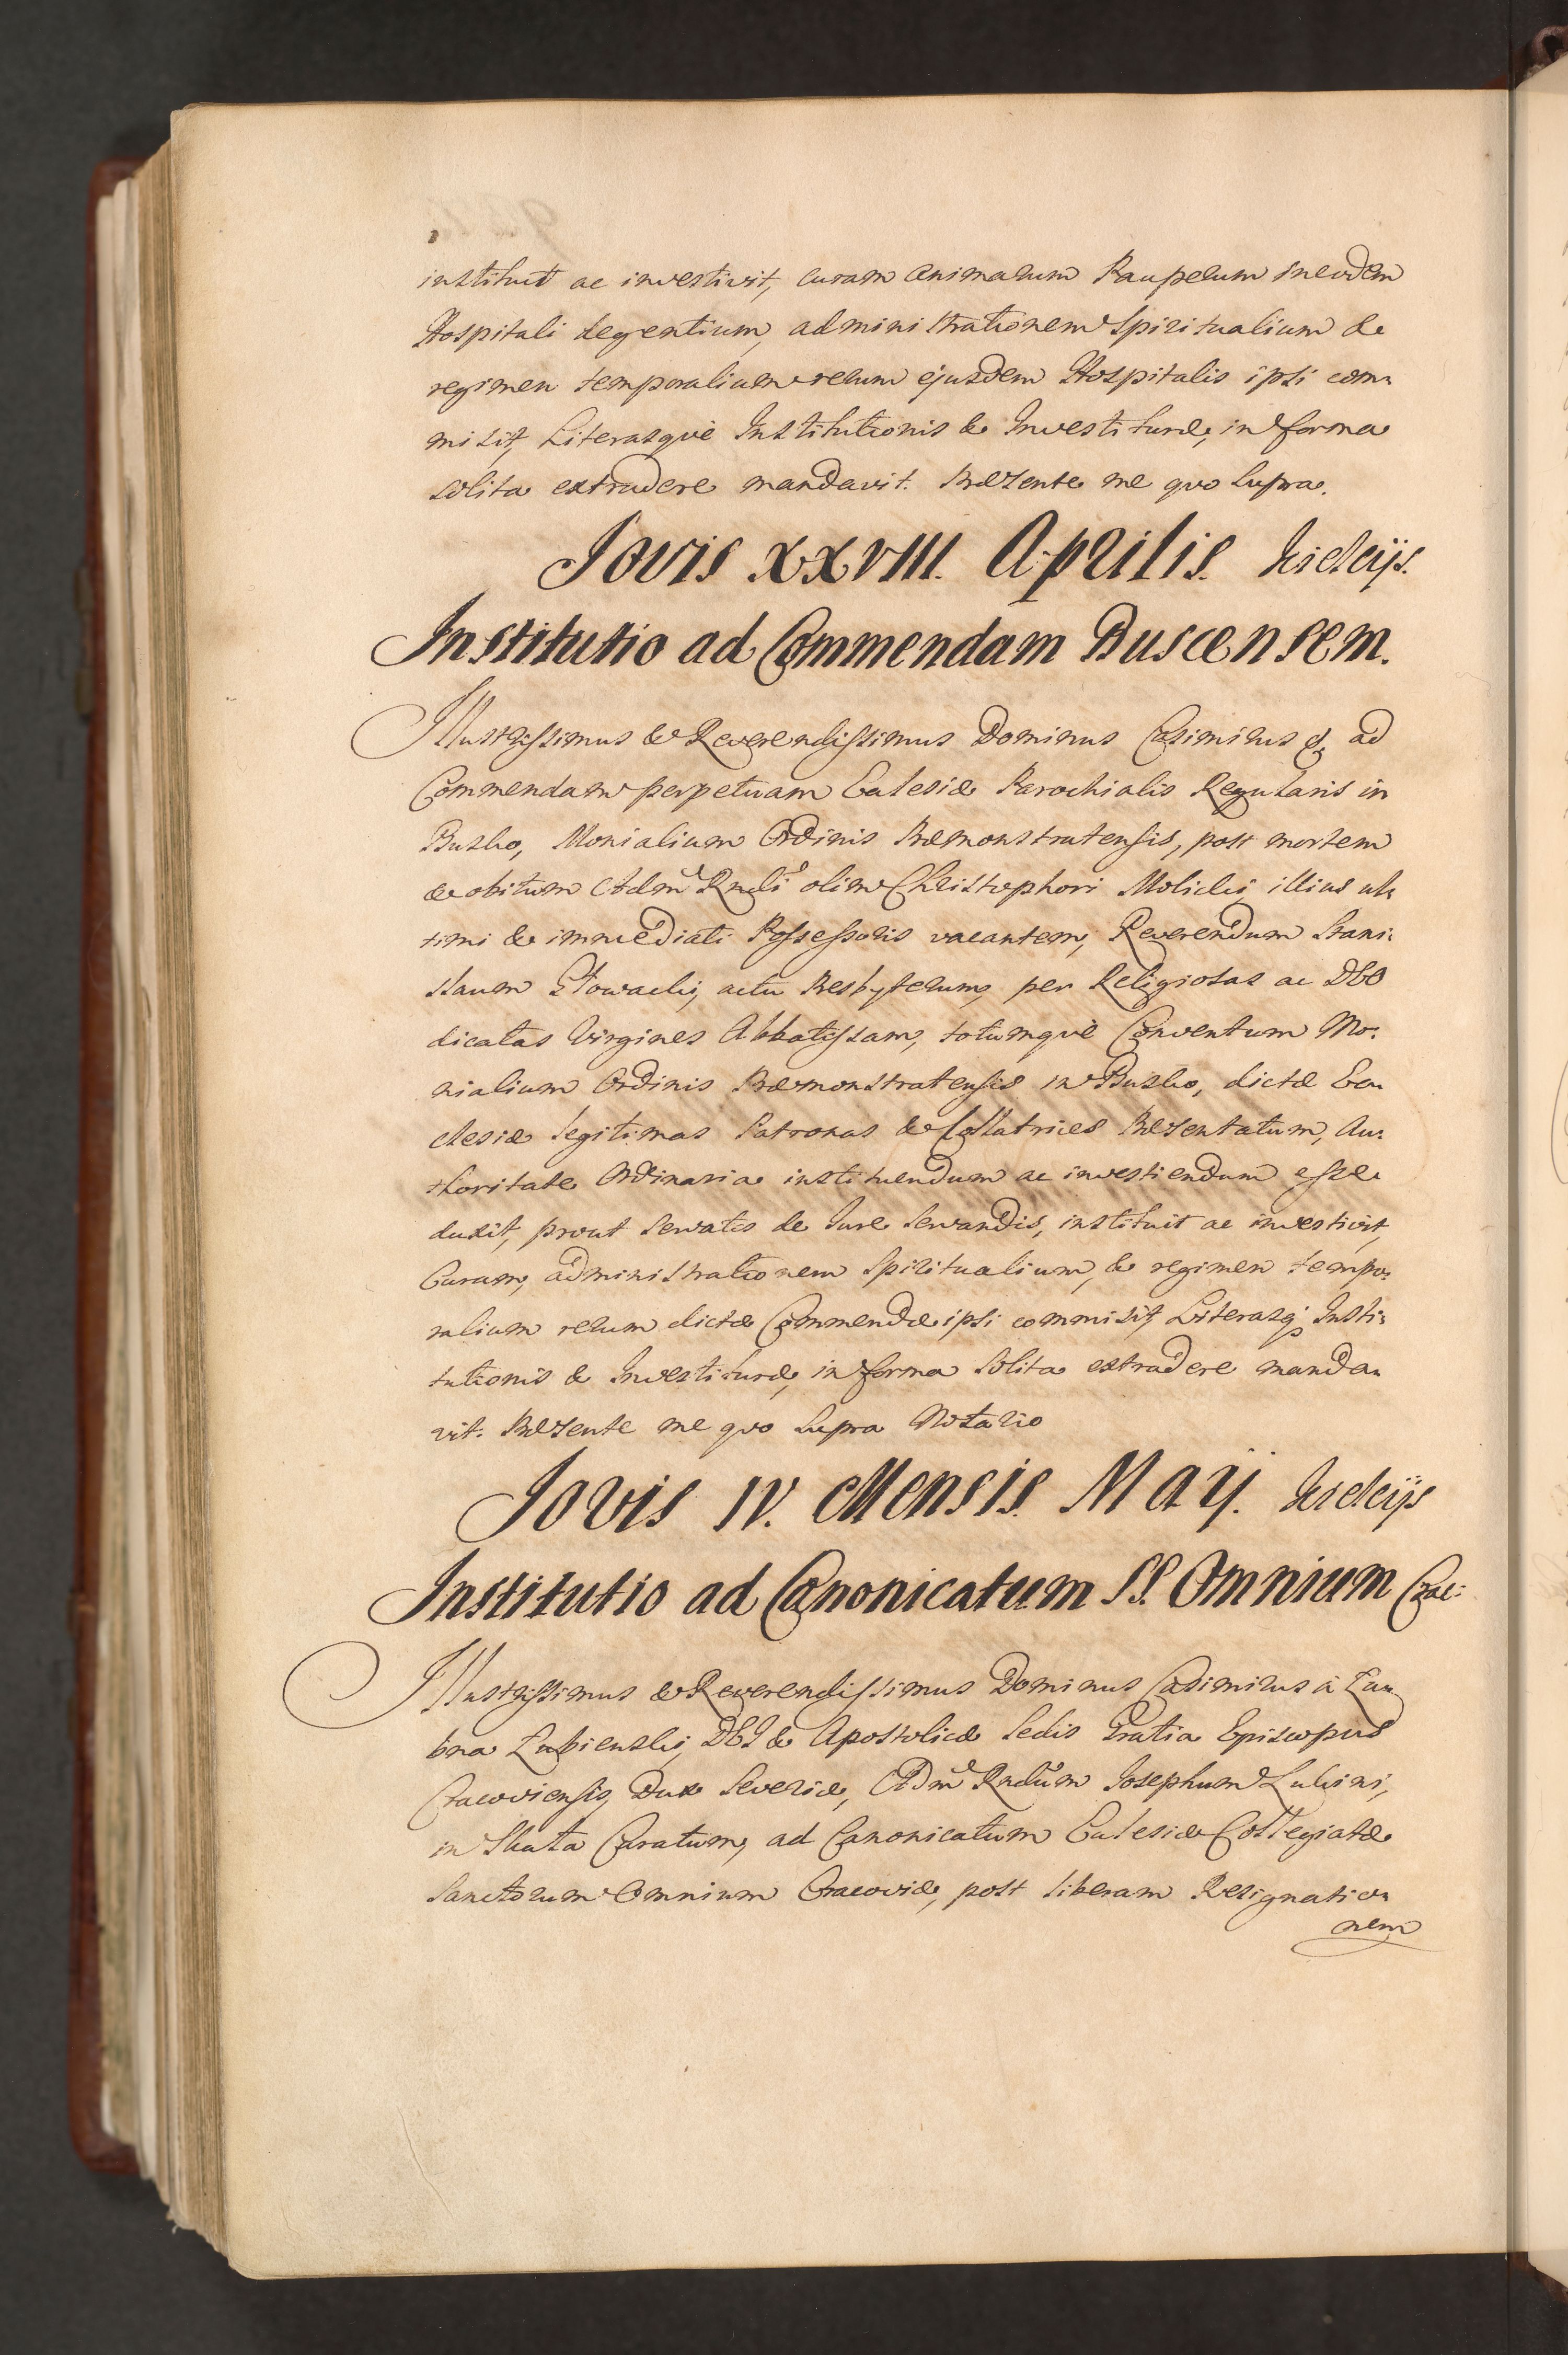 instituit ac investivit, curam Animarum Pauperum in eodem
Hospitali degentium, administrationem Spiritualium &
regimen temporalium rerum ejusdem Hospitalis ipsi com=
misit, Literasquè Institutionis & Investituræ, in forma
solita extradere mandavit. Præsente me quo supra.
Jovis XXVIII. Aprilis.
Institutio ad Commendam Buscensem.
Illustrissimus & Reverendissimus Dominus Casimirus &c ad
Commendam perpetuam Ecclesiæ Parochialis Regularis in
Busko, Monialium Ordinis Præmonstratensis, post mortem
& obitum Adm Rndi olim Christophori Molicki, illius ul=
timi & immediati Possessoris vacantem, Reverendum Stani=
slaum Słowacki, actu Presbyterum, per Religiosas ac DEO
dicatas Virgines Abbatissam, totumquè Conventum Mo=
nialium Ordinis Præmonstratensis in Busko, dictæ Ec=
clesiæ legitimas Patronas & Collatrices Præsentatum, Au=
thoritate Ordinaria instituendum ac investiendum esse
duxit, prout servatis de Jure servandis, instituit ac investivit,
Curam, administrationem Spiritualium, & regimen tempo=
ralium rerum dictæ Commendæ ipsi commisit, Literasq; Insti=
tutionis & Investituræ, in forma solita extradere manda=
vit. Præsente me quo supra Notario
Jovis IV. Mensis Maij.
Institutio ad Canonicatum SS. Omnium Crac:
Illustrissimus & Reverendissimus Dominus Casimirus à Łu=
bna Łubienski, DEI & Apostolicæ Sedis Gratia Episcopus
Cracoviensis, Dux Severiæ, Adm Rndum Josephum Lukini,
in Skała Curatum, ad Canonicatum Ecclesiæ Collegiatæ
Sanctorum Omnium Cracoviæ, post liberam Resignatio=
nem